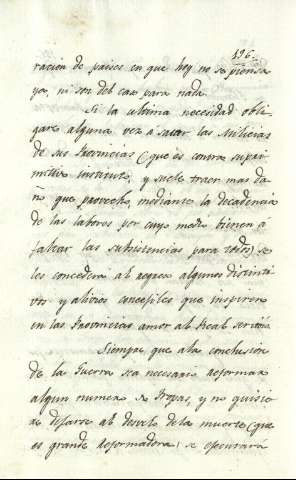 196.
racion de paises en que hoy no se piensa
ya, ni son del caso para nada.
Si la ultima necesidad obli-
gare alguna vez á sacar las Milicias
de sus Provincias (que es contra su pri-
mitivo instituto, y suele traer mas da-
ño que provecho, mediante la decadencia
de las labores por cuyo medio vienen á
faltar las subsistencias para todos) se
les concederá al regreso algunos distinti-
vos y alivios concejiles que inspiren
en las Provincias amor al Real servicio.
Siempre que a la conclusion
de la Guerra sea necesario reformar
algun numero de Tropas, y no quisie-
re dejarse al desvelo de la muerte (que
es grande reformadora) se procurará